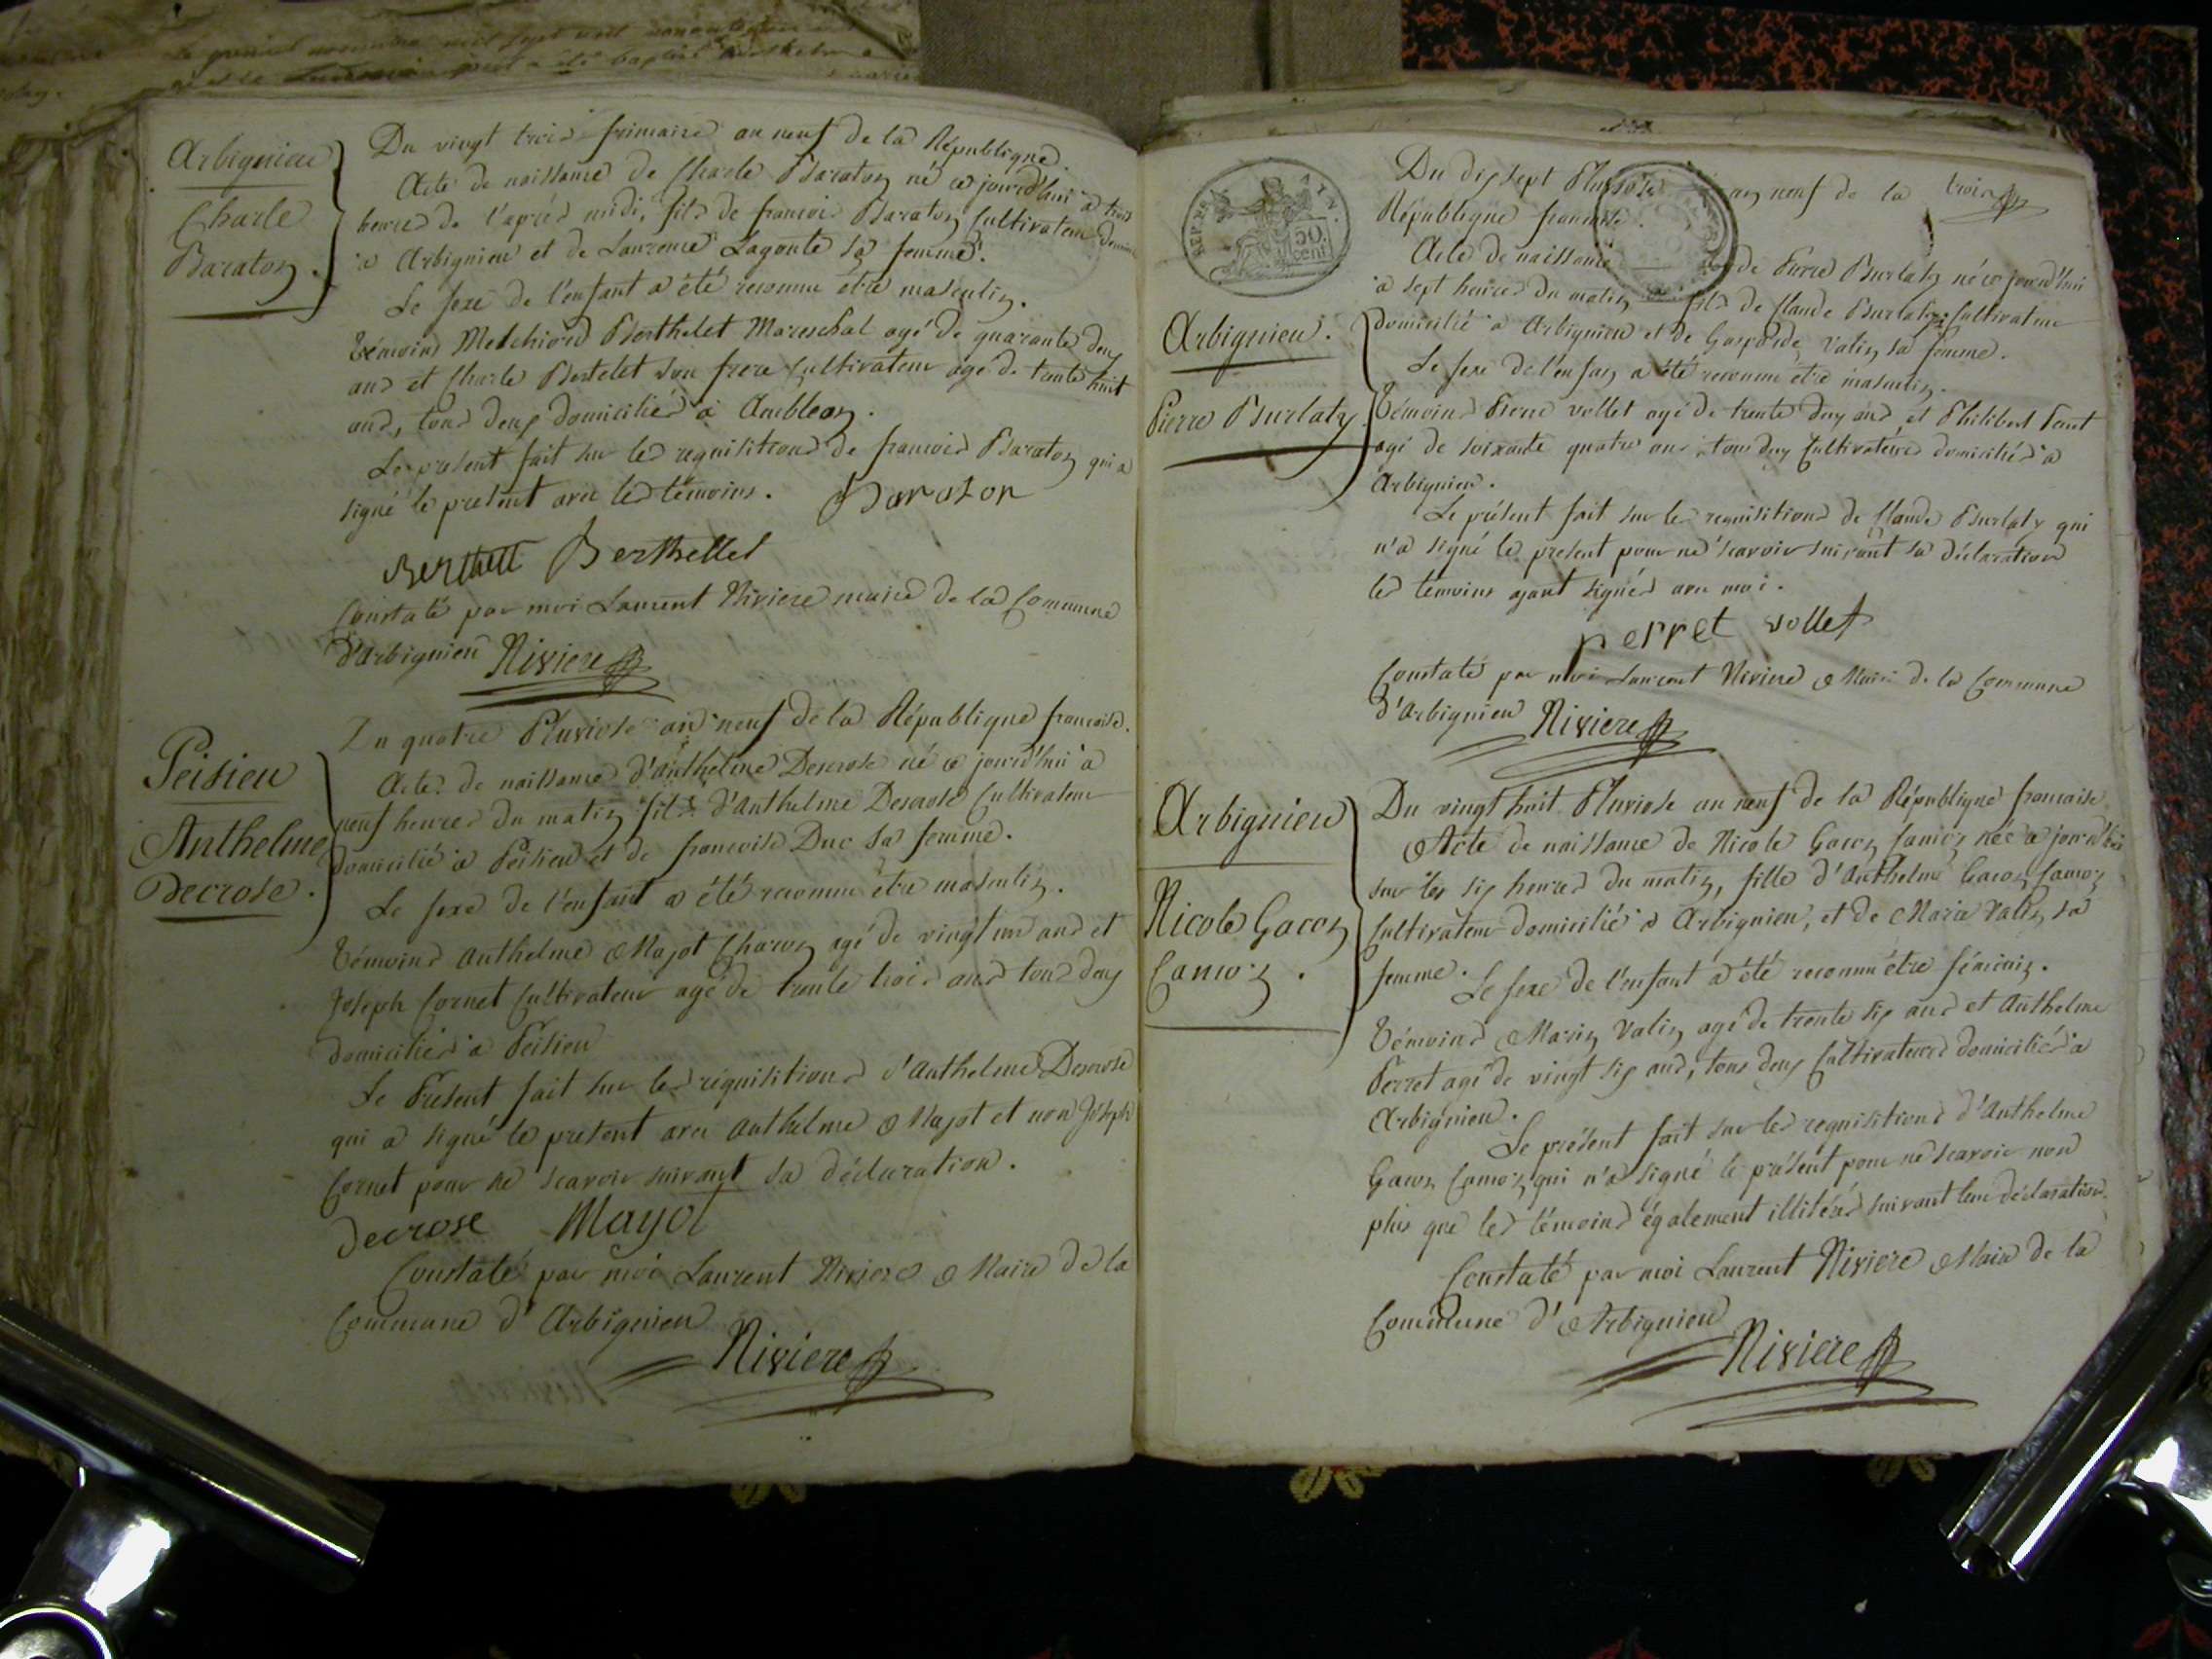 Arbignieu
Charle
Baraton.
Du vingt trois frimaire an neuf de la République
Acte de naissance de Charle Baraton né ce jourd'hui à trois
heures de l'après midi, fils de francois Baraton Cultivateur
à Arbignieu et de Laurence Lagoute sa femme.
Le sexe de l'enfant a été reconnu être masculin.
Témoins Melchiord Berthelet Mareschal agé de quarante deux
ans et Charle Bertelet son frere Cultivateur agé de trente huit
ans, tous deux domiciliés à Ambleon.
Le present fait sur les requisitions de francois Baraton qui a
signé le present avec les témoins. Baraton
Berthelet Berthellet
Constaté par moi Laurent Riviere maire de la Commune
d'Arbignieu Riviere
Peisieu
Anthelme
Decrose.
Du quatre Pluviose an neuf de la République francoise.
Acte de naissance d'Anthelme Descrose né ce jourd'hui à
neuf heures du matin fils d'Anthelme Descrose Cultivateur
domicilié à Peisieu et de francoise Duc sa femme.
Le sexe de l'enfant a été reconnu être masculin.
Témoins Anthelme Majot Charon agé de vingt un ans et
Joseph Cornet Cultivateur agé de trente trois ans tous deux
domiciliés à Peisieu
Le Présent fait sur les réquisitions d'Anthelme Descrose
qui a signé le present avec Anthelme Majot et non Joseph
Cornet pour ne scavoir suivant sa déclaration.
Decrose Mayot
Constaté par moi Laurent Riviere Maire de la
Commune d'Arbignieu
Riviere
REP. FRA. AIN.
50.
cent.
Du dix sept Pluviose an neuf de la trois
République francoise.
Acte de naissance de Pierre Burlatz né ce jourd'hui
à sept heures du matin fils de Claude Burlatz Cultivateur
domicilié à Arbignieu et de Gasparde Valin sa femme.
Le sexe de l'enfan a été reconnu etre masculin.
Arbignieu.
Pierre Burlatz
Témoins Pierre vollet agé de trente deux ans et Philibert
agé de soixante quatre ans, tous deux Cultivateurs domiciliés à
Arbignieu.
Le présent fait sur les requisitions de Claude Burlatz qui
n'a signé le present pour ne scavoir suivant sa déclaration
les temoins ayant signés avec moi.
perret vollet
Constaté par moi Laurent Riviere Maire de la Commune
d'Arbignieu Riviere
Arbignieu
Nicole Gacon
Camoz.
Du vingt huit Pluviose an neuf de la République francoise
Acte de naissance de Nicole Gacon Camoz née ce jourd'hui
sur les six heures du matin, fille d'Anthelme Gacon Camoz
Cultivateur domicilié à Arbignieu, et de Marie Valin sa
femme. Le sexe de l'enfant a été reconnu être féminin.
Témoins Marin Valin agé de trente six ans et Anthelme
Perret agé de vingt six ans, tous deux Cultivateurs domiciliés à
Arbignieu.
Le présent fait sur les requisitions d'Anthelme
Gacon Camoz qui n'a signé le présent pour ne scavoir non
plus que les témoins également illitérés suivant leur déclaration.
Constaté par moi Laurent Riviere Maire de la
Commune d'Arbignieu
Riviere